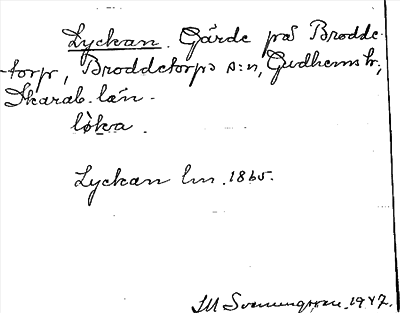 Lyckan. Gärde på Brodde-
torp, Broddetorps s:n, Gudhems hd,
Skarab. län.
lø̀ka.
Lyckan lm. 1865.
SM Svenungsson. 1947.